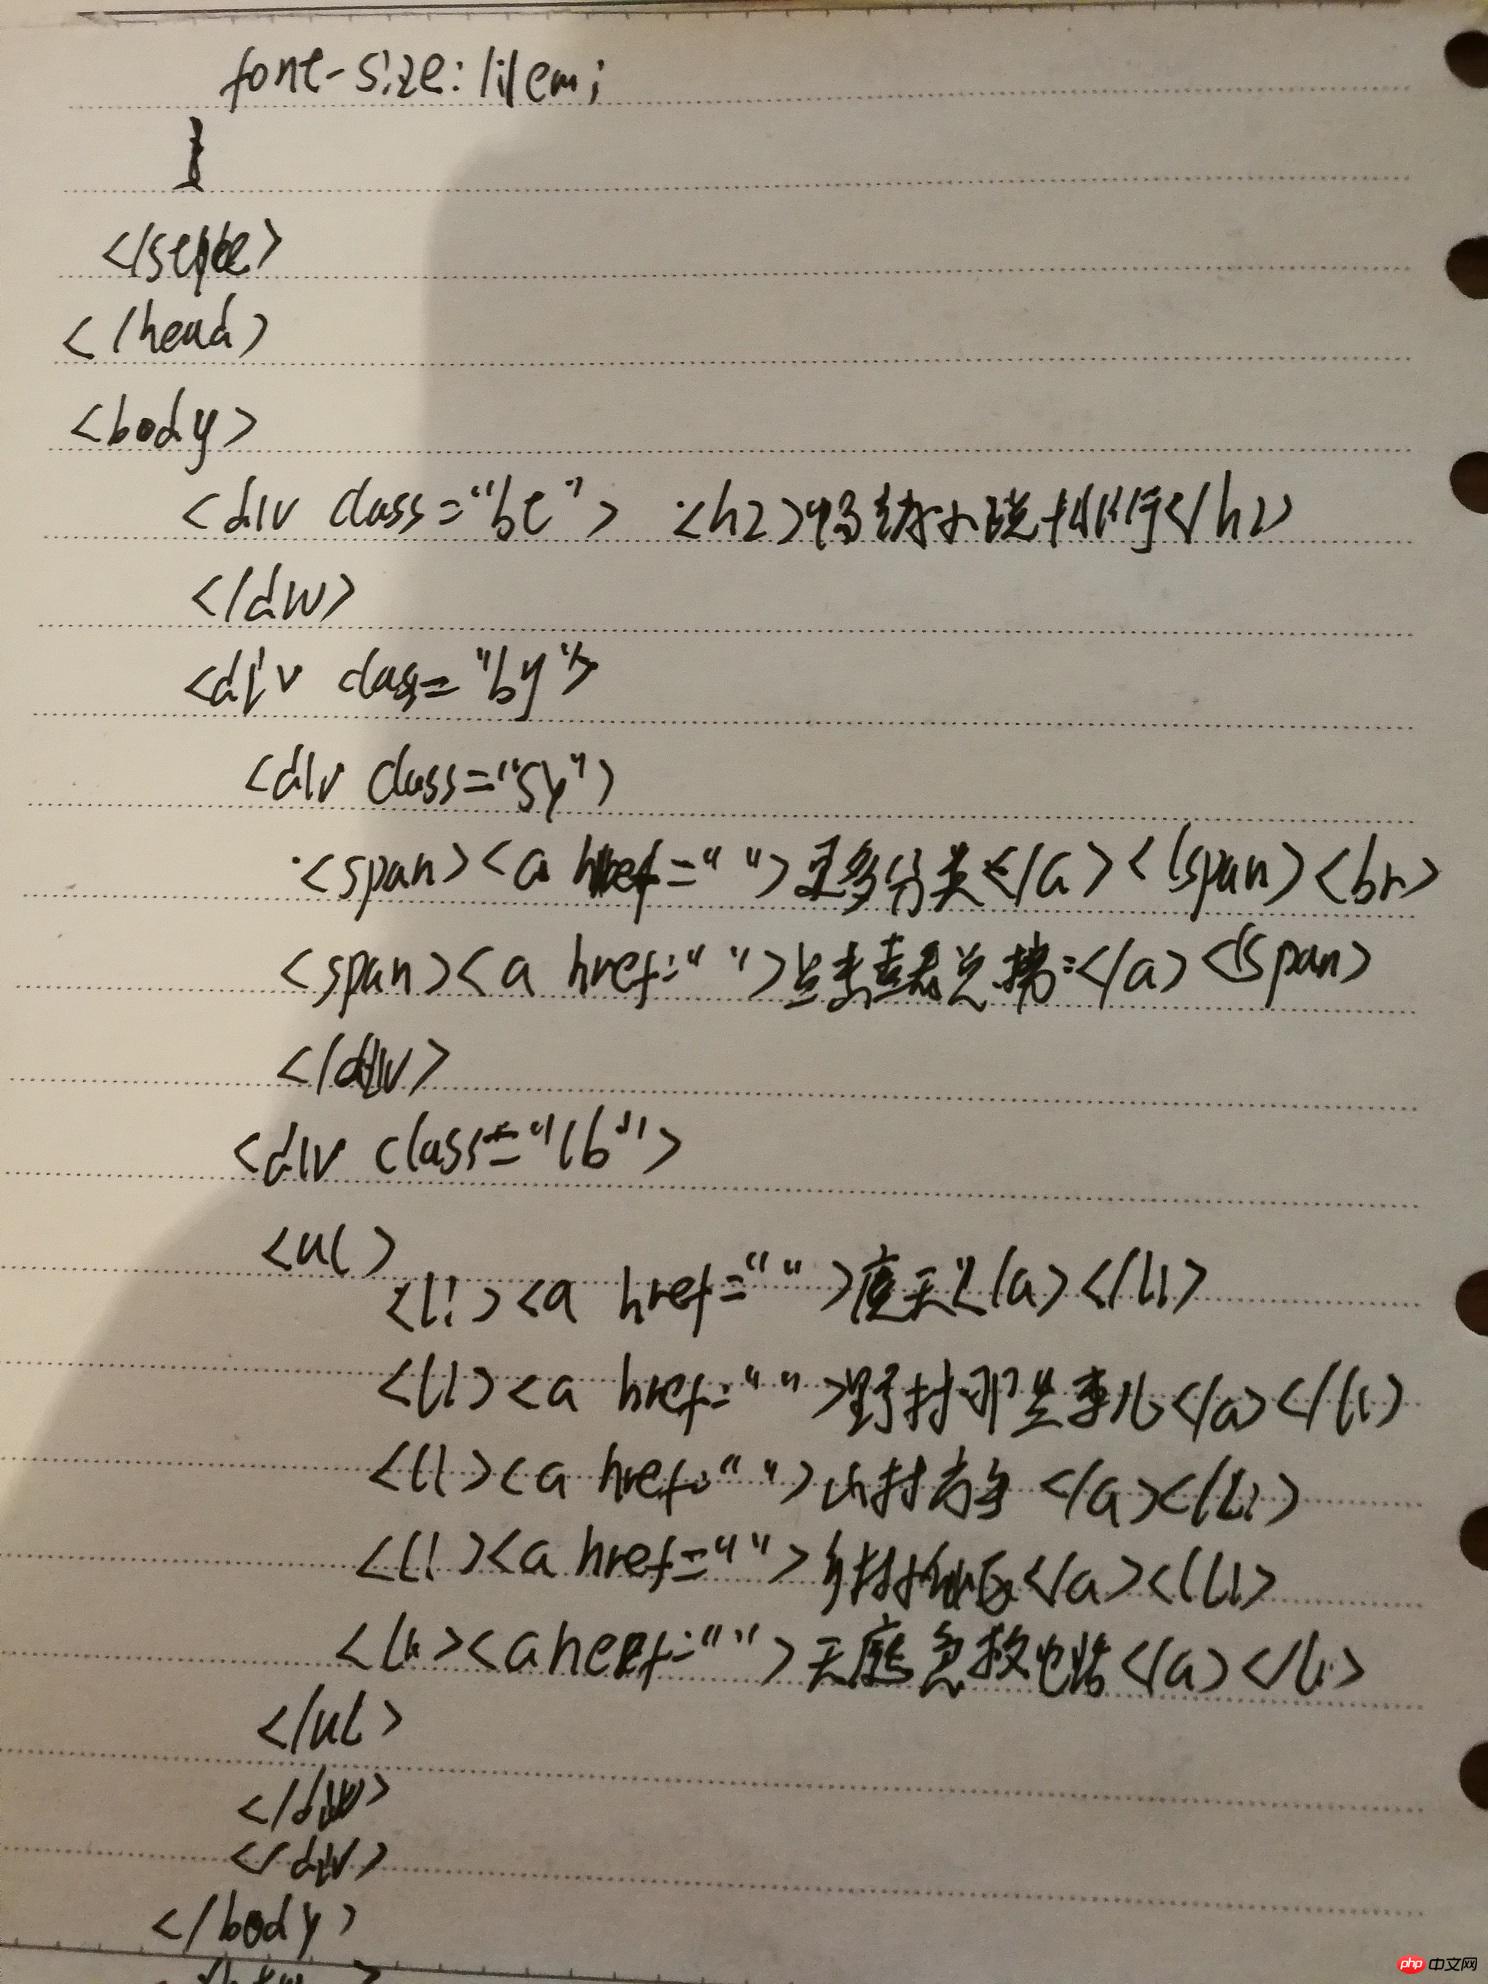 font-size: 1.1em;
}
</style>
</head>
<body>
<div class="bt"> <h2>完结小说排行</h2>
</div>
<div class="by">
<div class="sy">
<span><a href=" ">更多分类</a></span><br>
<span><a href=" ">点击查看总榜:</a></span>
</div>
<div class="lb">
<ul>
<li><a href=" ">度天</a></li>
<li><a href=" ">野村那些事儿</a></li>
<li><a href=" ">山村</a></li>
<li><a href=" ">乡村</a></li>
<li><a href=" ">天庭急救电话</a></li>
</ul>
</div>
</div>
</body>
php 中文网